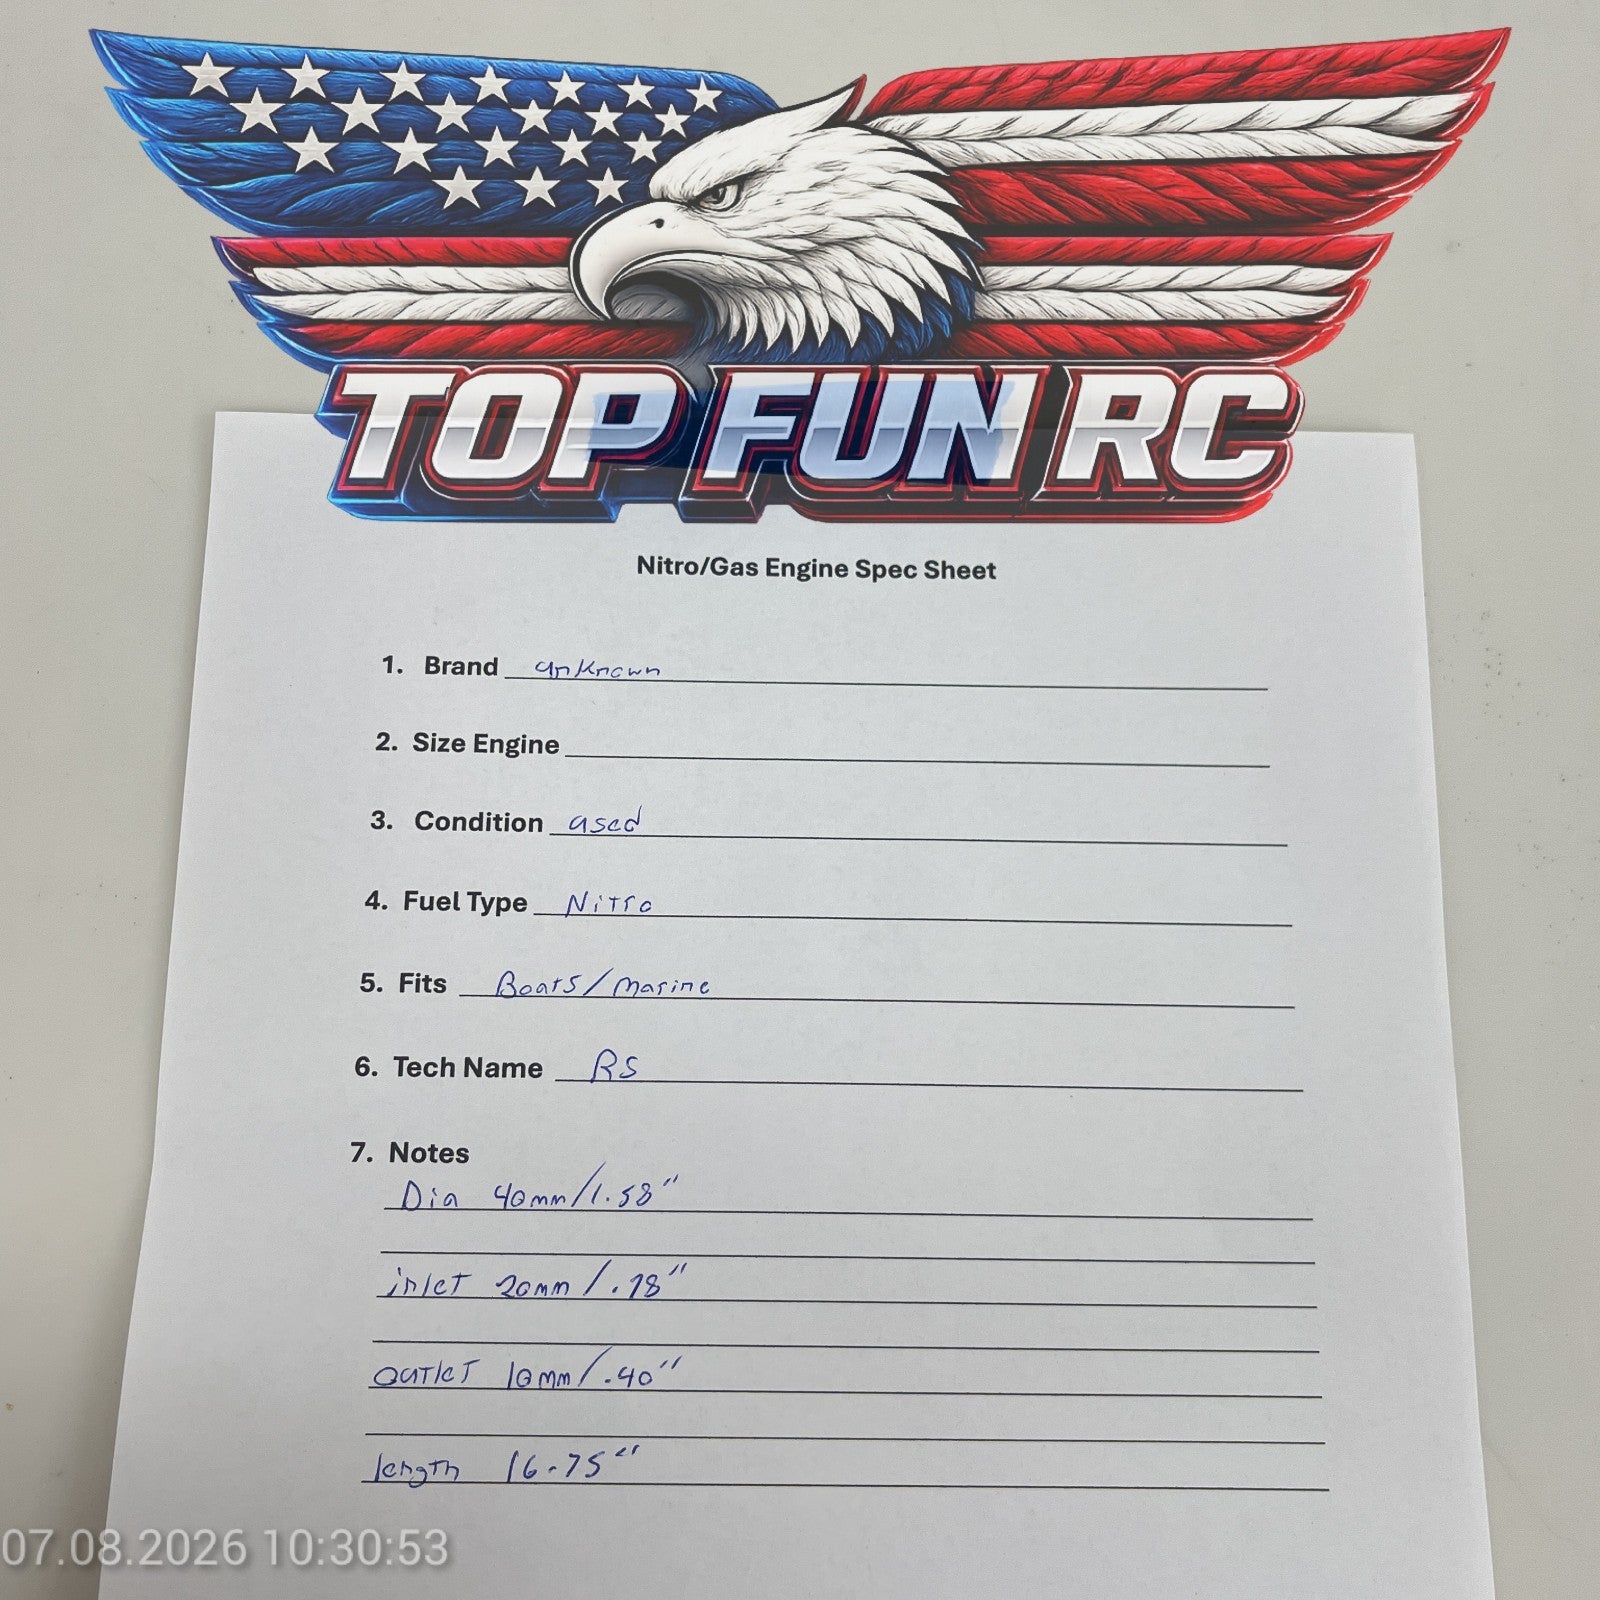 TOP FUN RC
Nitro/Gas Engine Spec Sheet
1. Brand unknown
2. Size Engine
3. Condition used
4. Fuel Type Nitro
5. Fits Boats/marine
6. Tech Name RS
7. Notes
Dia 40mm/1.58"
inlet 20mm/.78"
outlet 10mm/.40"
length 16.75"
07.08.2026 10:30:53